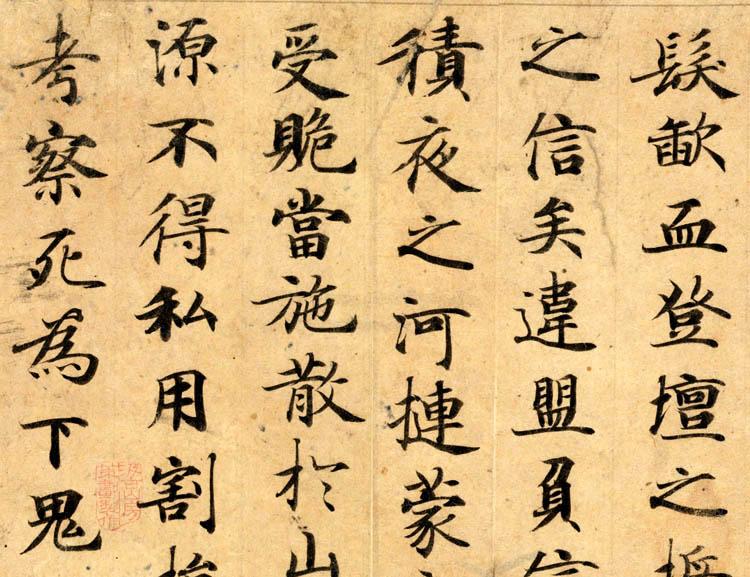 髮歃血登壇之
之信矣違盟負信
積夜之河摙蒙
受䞈當施散於山
源不得私用割
考察死為下鬼